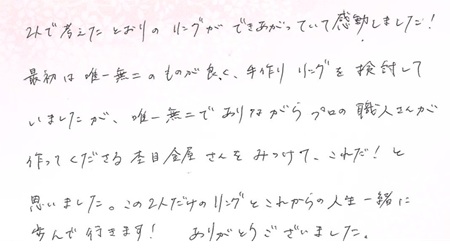 2人で考えたとおりのリングができあがっていて感動しました!
最初は唯一無二のものが良く、手作りリングを検討して
いましたが、唯一無二でありながらプロの職人さんが
作ってくださる杢目金屋さんをみつけて、これだ!と
思いました。この2人だけのリングとこれからの人生一緒に
歩んで行きます! ありがとうございました。